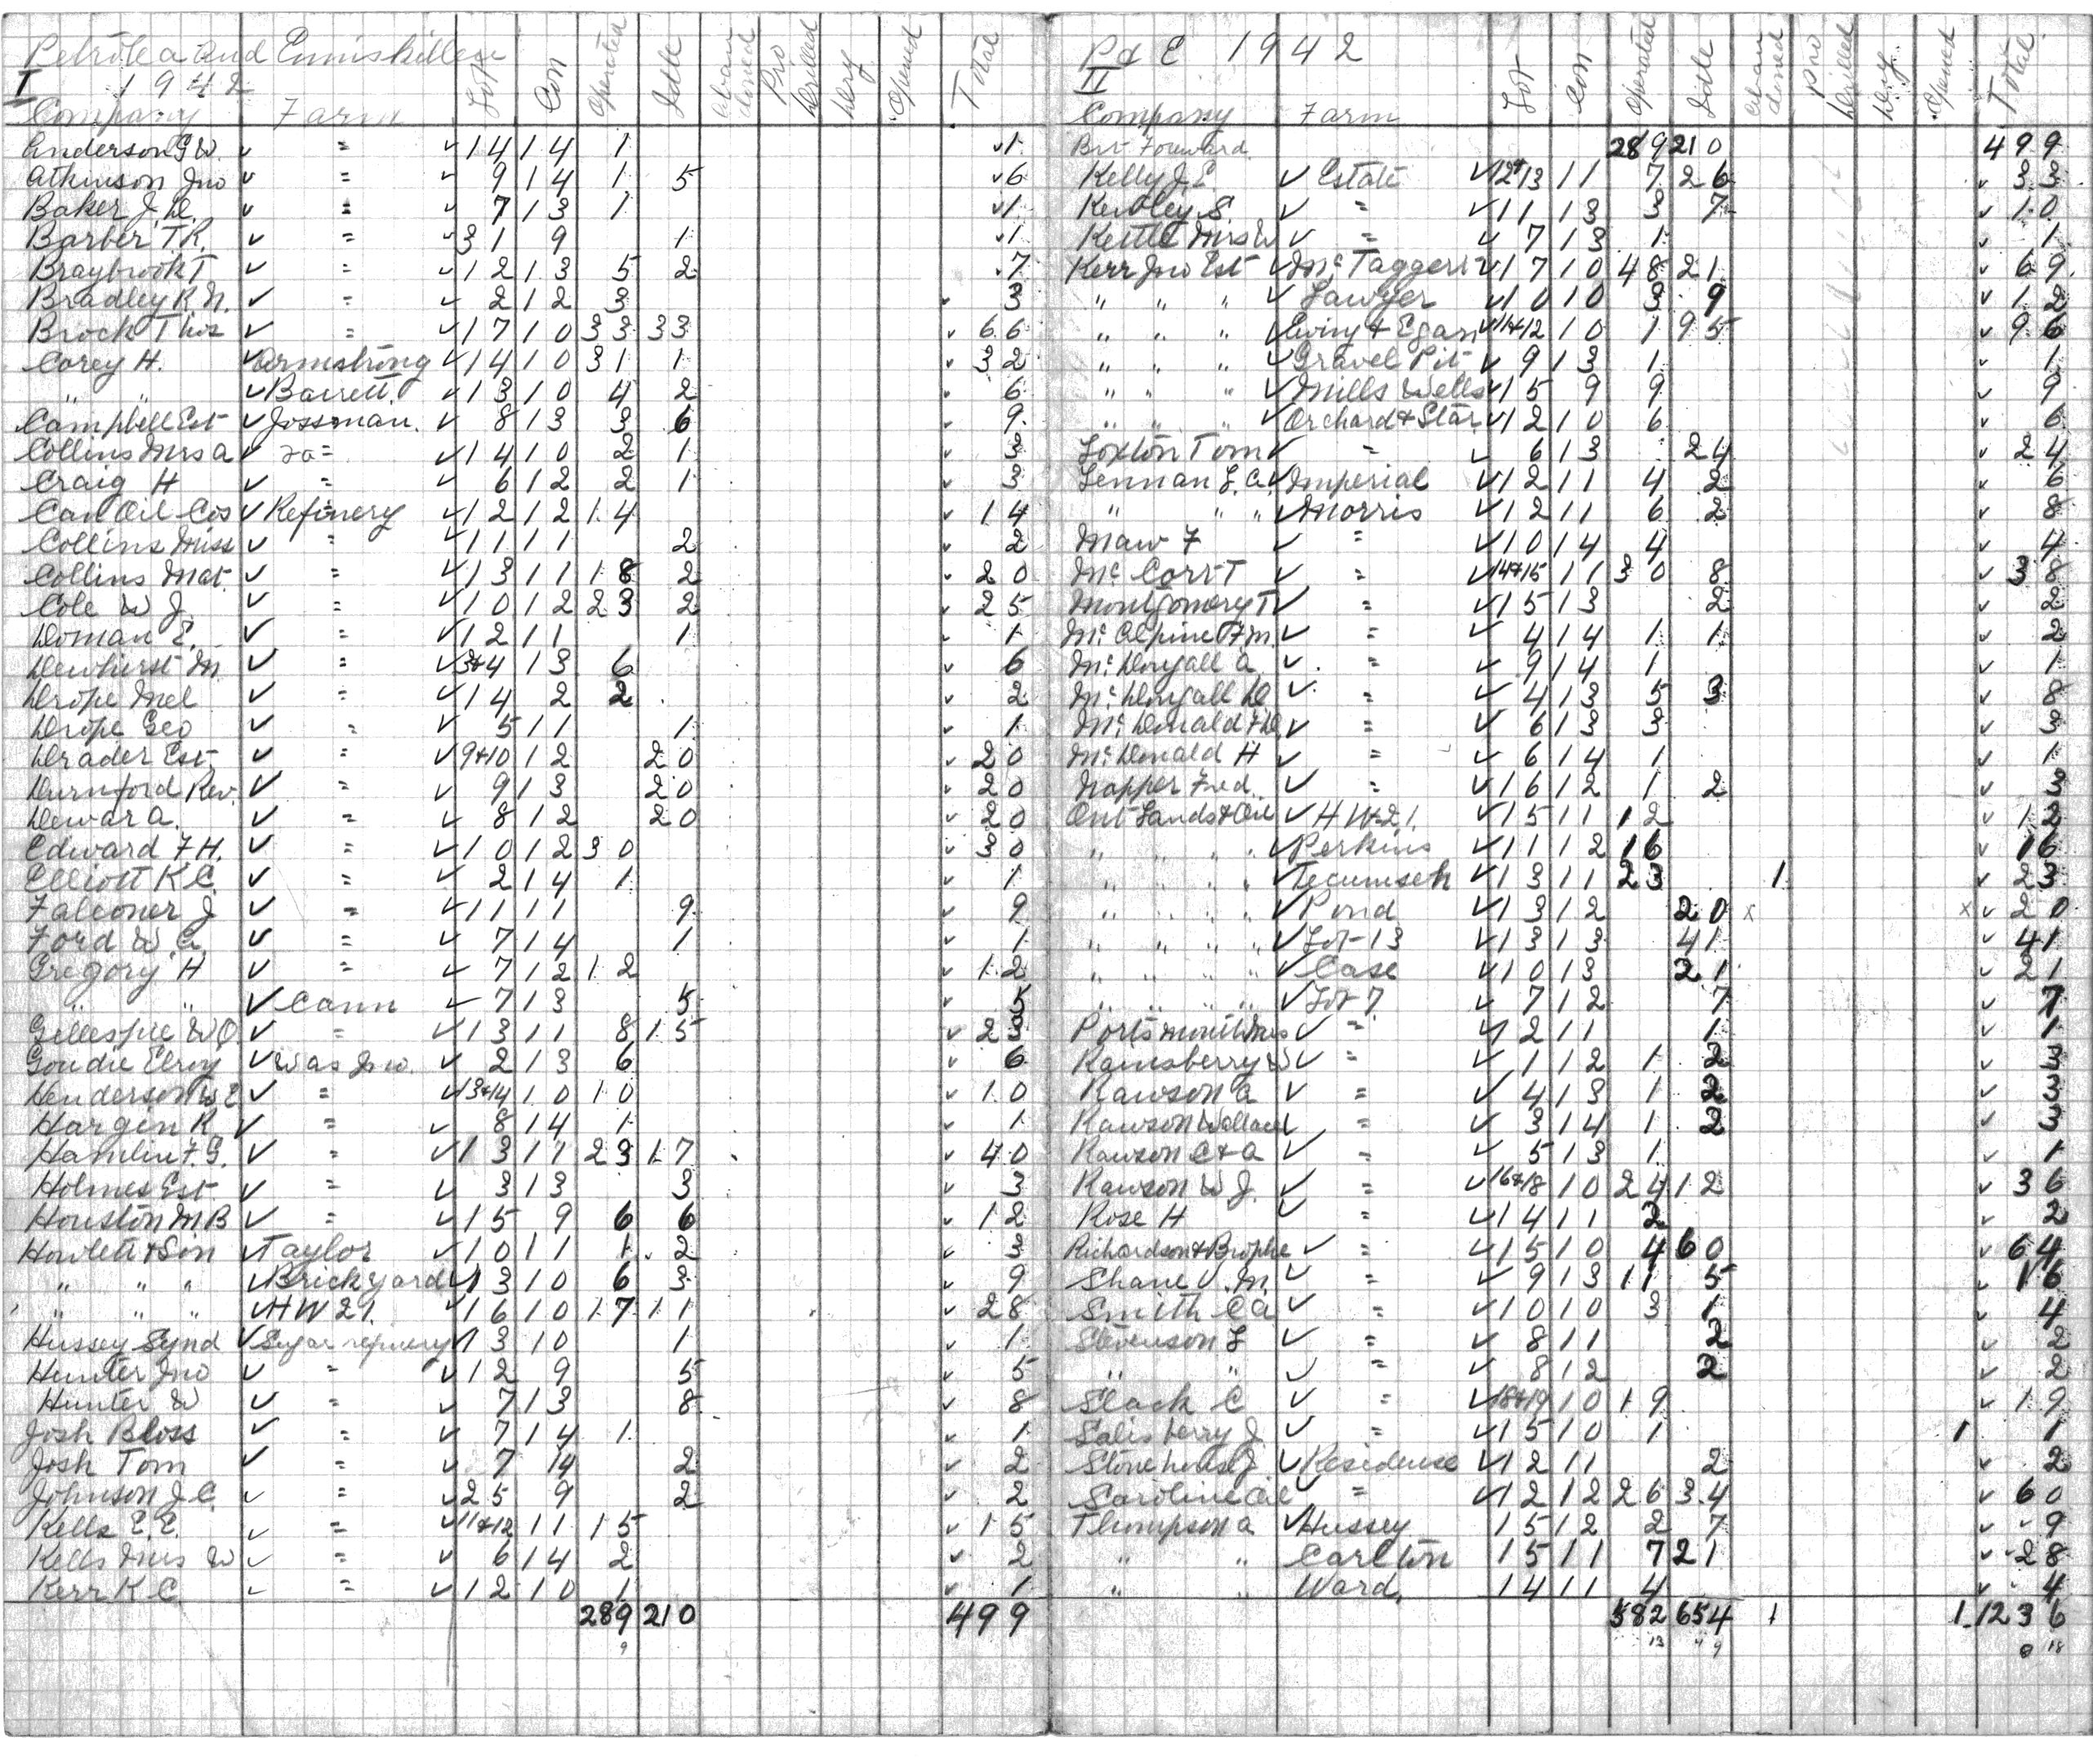 Petrolea and Enniskillen
I 1942
Company Farm Lot Con Operated Idle Aban doned Pro Drilled Dry Opened Total
Anderson G W. ✓ = ✓ 14 14 1 ✓ 1
Atkinson Jno ✓ = ✓ 9 14 1 5 ✓ 6
Baker J. D. ✓ = ✓ 7 13 1 ✓ 1
Barber T.R. ✓ = ✓ 31 9 1 ✓ 1
Braybrook T ✓ = ✓ 12 13 5 2 ✓ 7
Bradley R. N. ✓ = ✓ 2 12 3 ✓ 3
Brock Thos ✓ = ✓ 17 10 33 33 ✓ 66
Corey H. ✓ Armstrong ✓ 14 10 31 1 ✓ 32
" " ✓ Barrett. ✓ 13 10 4 2 ✓ 6
Campbell Est ✓ Jossman. ✓ 8 13 3 6 ✓ 9
Collins Mrs A ✓ = ✓ 14 10 2 1 ✓ 3
Craig H ✓ = ✓ 6 12 2 1 ✓ 3
Can Oil Cos ✓ Refinery ✓ 12 12 14 ✓ 14
Collins Miss ✓ = ✓ 11 11 2 ✓ 2
Collins Mat. ✓ = ✓ 13 11 18 2 ✓ 20
Cole W J. ✓ = ✓ 10 12 23 2 ✓ 25
Doman E. ✓ = ✓ 12 11 1 ✓ 1
Dewhirst M. ✓ = ✓ 3+4 13 6 ✓ 6
Drope Mel ✓ = ✓ 14 2 2 ✓ 2
Drope Geo ✓ = ✓ 5 11 1 ✓ 1
Drader Est. ✓ = ✓ 9+10 12 20 ✓ 20
Durnford Rev. ✓ = ✓ 9 13 20 ✓ 20
Dewar A. ✓ = ✓ 8 12 20 ✓ 20
Edward F. H. ✓ = ✓ 10 12 30 ✓ 30
Elliott K. C. ✓ = ✓ 2 14 1 ✓ 1
Falconer J ✓ = ✓ 11 11 9 ✓ 9
Ford W. G. ✓ = ✓ 7 14 1 ✓ 1
Gregory H ✓ = ✓ 7 12 12 ✓ 12
" " ✓ Cann ✓ 7 13 5 ✓ 5
Gillespie W O ✓ = ✓ 13 11 8 15 ✓ 23
Goudie Elroy ✓ Was Jno. ✓ 2 13 6 ✓ 6
Henderson W E ✓ = ✓ 13+14 10 10 ✓ 10
Hargin R ✓ = ✓ 8 14 1 ✓ 1
Hamlin F. G. ✓ = ✓ 13 11 23 17 ✓ 40
Holmes Est. ✓ = ✓ 3 13 3 ✓ 3
Houston M B ✓ = ✓ 15 9 6 6 ✓ 12
Howlett & Son ✓ Taylor ✓ 10 11 1 2 ✓ 3
" " " ✓ Brickyard ✓ 13 10 6 3 ✓ 9
" " " ✓ HW 21. ✓ 16 10 17 11 ✓ 28
Hussey Synd ✓ Sugar refinery ✓ 13 10 1 ✓ 1
Hunter Jno ✓ = ✓ 12 9 5 ✓ 5
Hunter W ✓ = ✓ 7 13 8 ✓ 8
Josh Bloss ✓ = ✓ 7 14 1 ✓ 1
Josh Tom ✓ = ✓ 7 14 2 ✓ 2
Johnson J. C. ✓ = ✓ 25 9 2 ✓ 2
Kells E. E. ✓ = ✓ 11+12 11 15 ✓ 15
Kells Mrs W ✓ = ✓ 6 14 2 ✓ 2
Kerr K C ✓ = ✓ 12 10 1 ✓ 1
289 210 499
9
P & E 1942
II
Company Farm Lot Con Operated Idle Aban doned Pro Drilled Dry Opened Total
Bro Forward 289 210 499
Kelly J. E. ✓ Estate ✓ 12+13 11 7 26 ✓ 33
Kerbley S. ✓ = ✓ 11 13 3 7 ✓ 10
Kettle Mrs W ✓ = ✓ 7 13 1 ✓ 1
Kerr Jno Est ✓ McTaggert ✓ 17 10 48 21 ✓ 69
" " " ✓ Lawyer ✓ 10 10 3 9 ✓ 12
" " " ✓ Ewing & Egan ✓ 11+12 10 1 95 ✓ 96
" " " ✓ Gravel Pit ✓ 9 13 1 ✓ 1
" " " ✓ Mills Wells ✓ 15 9 9 ✓ 9
" " " ✓ Orchard & Star ✓ 12 10 6 ✓ 6
Loxton Tom ✓ = ✓ 6 13 24 ✓ 24
Lennan L. A. ✓ Imperial ✓ 12 11 4 2 ✓ 6
" " " ✓ Morris ✓ 12 11 6 2 ✓ 8
Maw F ✓ = ✓ 10 14 4 ✓ 4
McCort T ✓ = ✓ 14+15 11 30 8 ✓ 38
Montgomery T ✓ = ✓ 15 13 2 ✓ 2
McAlpine F M. ✓ = ✓ 4 14 1 1 ✓ 2
McDougall A ✓ = ✓ 9 14 1 ✓ 1
McDougall D ✓ = ✓ 4 13 5 3 ✓ 8
McDonald F D ✓ = ✓ 6 13 3 ✓ 3
McDonald H ✓ = ✓ 6 14 1 ✓ 1
Napper Fred. ✓ = ✓ 16 12 1 2 ✓ 3
Ont Lands & Oil ✓ H W 21. ✓ 15 11 12 ✓ 12
" " " ✓ Perkins ✓ 11 12 16 ✓ 16
" " " ✓ Tecumseh ✓ 13 11 23 1 ✓ 23
" " " ✓ Pond ✓ 13 12 20 x x ✓ 20
" " " " ✓ Lot 13 ✓ 13 13 41 ✓ 41
" " " " ✓ Case ✓ 10 13 21 ✓ 21
" " " " ✓ Lot 7 ✓ 7 12 7 ✓ 7
Portsmouth Mrs ✓ = ✓ 12 11 1 ✓ 1
Rainsberry W ✓ = ✓ 1 12 1 2 ✓ 3
Rawson A ✓ = ✓ 4 13 1 2 ✓ 3
Rawson Wallace ✓ = ✓ 3 14 1 2 ✓ 3
Rawson C & A ✓ = ✓ 5 13 1 ✓ 1
Rawson W J. ✓ = ✓ 16+18 10 24 12 ✓ 36
Rose H ✓ = ✓ 14 11 2 ✓ 2
Richardson & Brophe ✓ = ✓ 15 10 4 60 ✓ 64
Shane V. M. ✓ = ✓ 9 13 11 5 ✓ 16
Smith C A ✓ = ✓ 10 10 3 1 ✓ 4
Stevenson L ✓ = ✓ 8 11 2 ✓ 2
" " ✓ = ✓ 8 12 2 ✓ 2
Slack C ✓ = ✓ 18+19 10 19 ✓ 19
Salisberry J. ✓ = ✓ 15 10 1 1 1
Stonehouse J ✓ Residense ✓ 12 11 2 ✓ 2
Saroline Oil ✓ = ✓ 12 12 26 34 ✓ 60
Thompson A ✓ Hussey 15 12 2 7 ✓ 9
" " Carlton 15 11 7 21 ✓ 28
" " Ward. 14 11 4 ✓ 4
582 654 1 1 1236
13 9 8 18